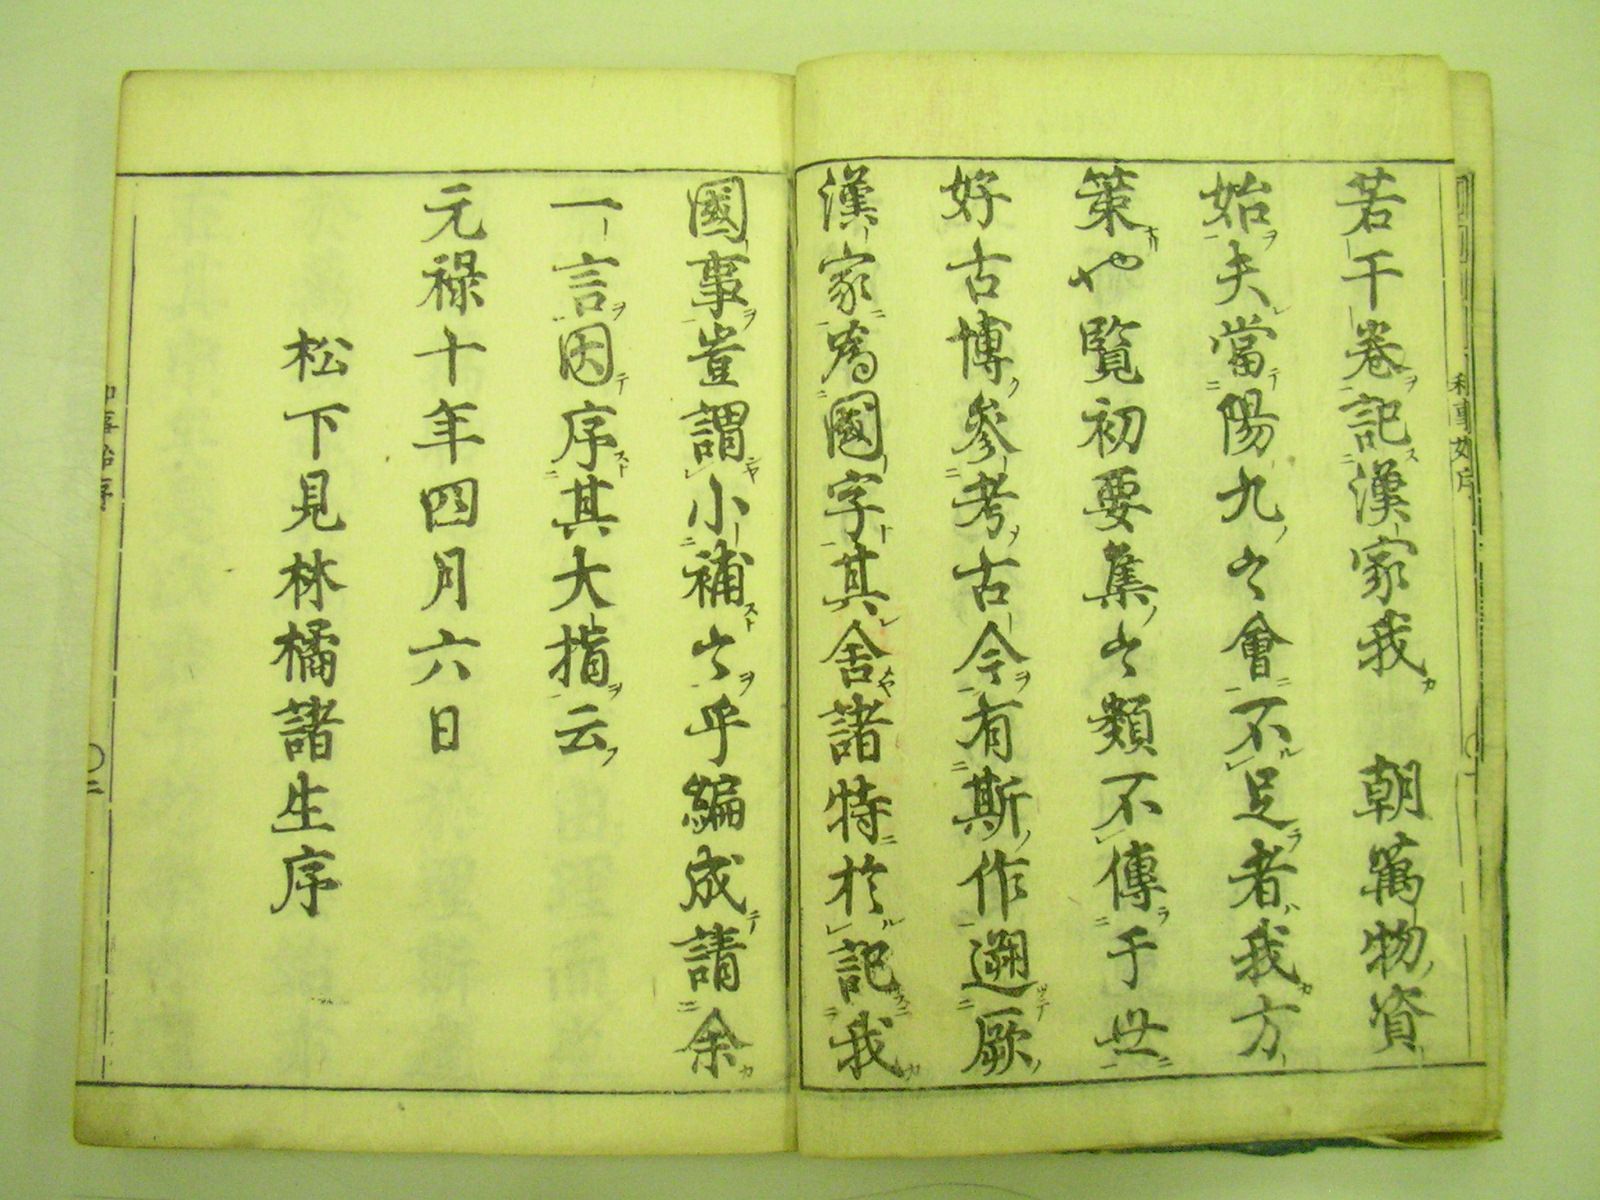 若干卷記漢家我 朝萬物資
始夫當陽九之會不足者我方
策也覽初要集之類不傳于世
好古博參考古今有斯作遡厥
漢家為國字其舍諸特於記我
國事豈謂小補之乎編成請余
一言因序其大指云
元祿十年四月六日
松下見林橘諸生序